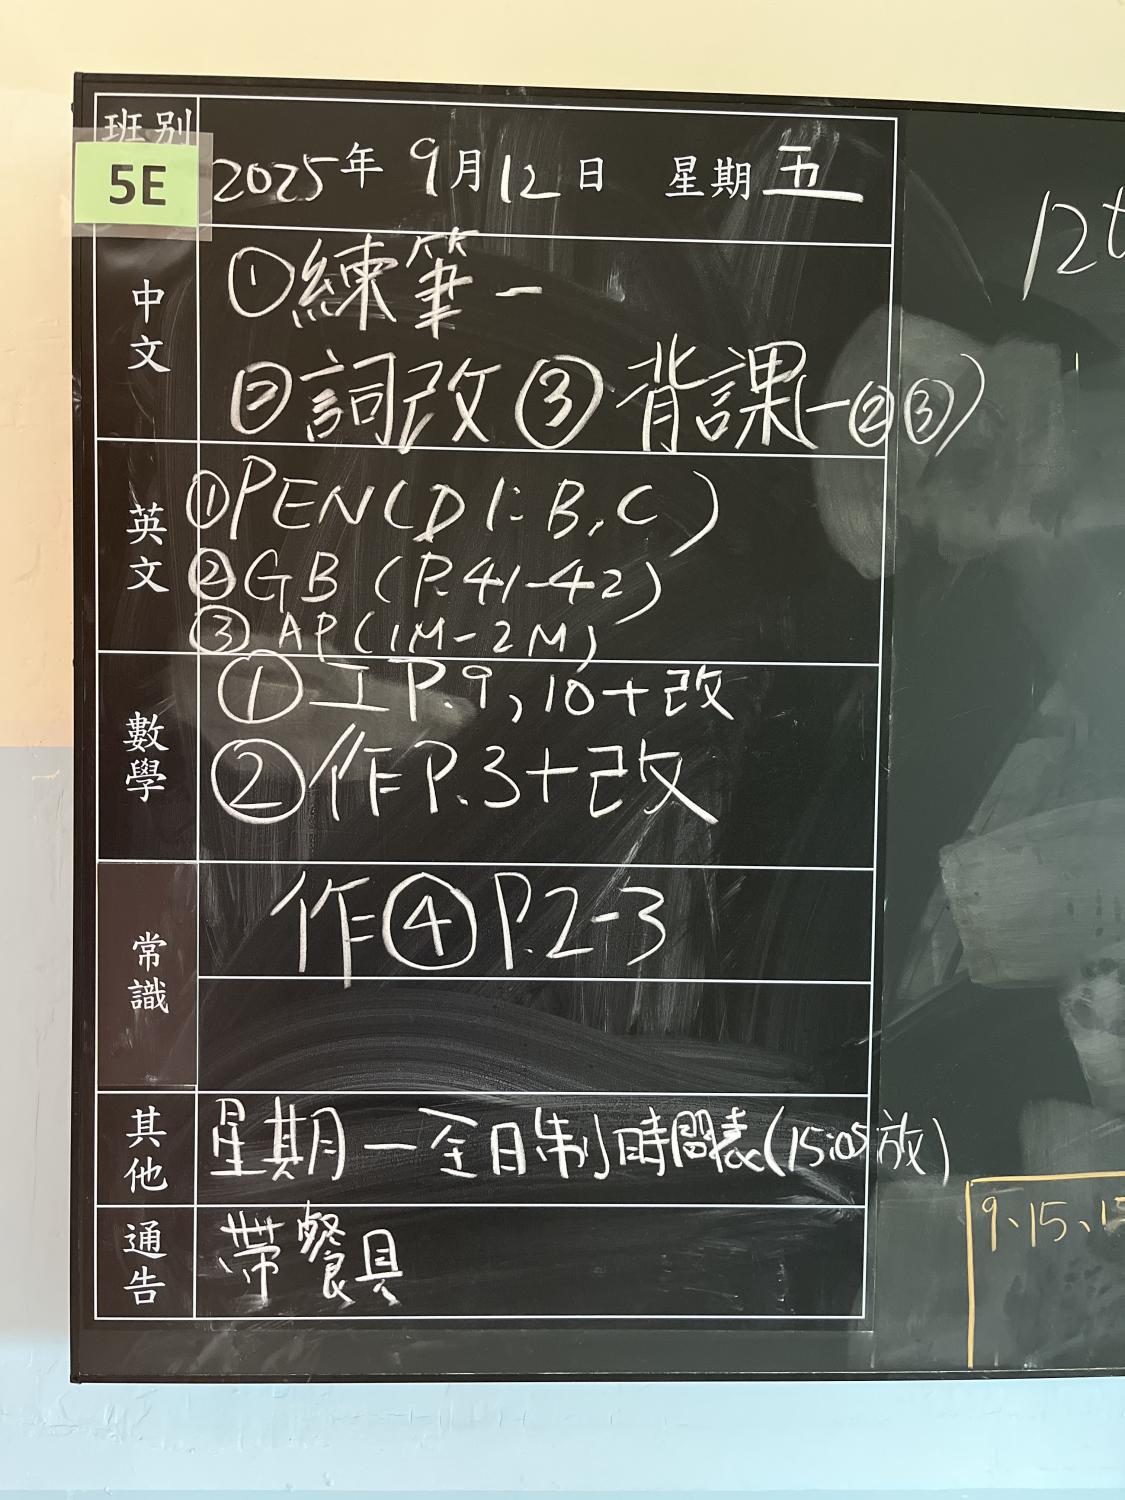 班別
5E
2025年 9月12日 星期五
中文
①練筆一
②詞改 ③背課(一②③)
英文
①PEN(D1:B,C)
②GB (P.41-42)
③AP(1M-2M)
數學
①工P.9,10+改
②作P.3+改
常識
作④P.2-3
其他
星期一全日制時間表(15:05放)
通告
帶餐具
12t
9、15、